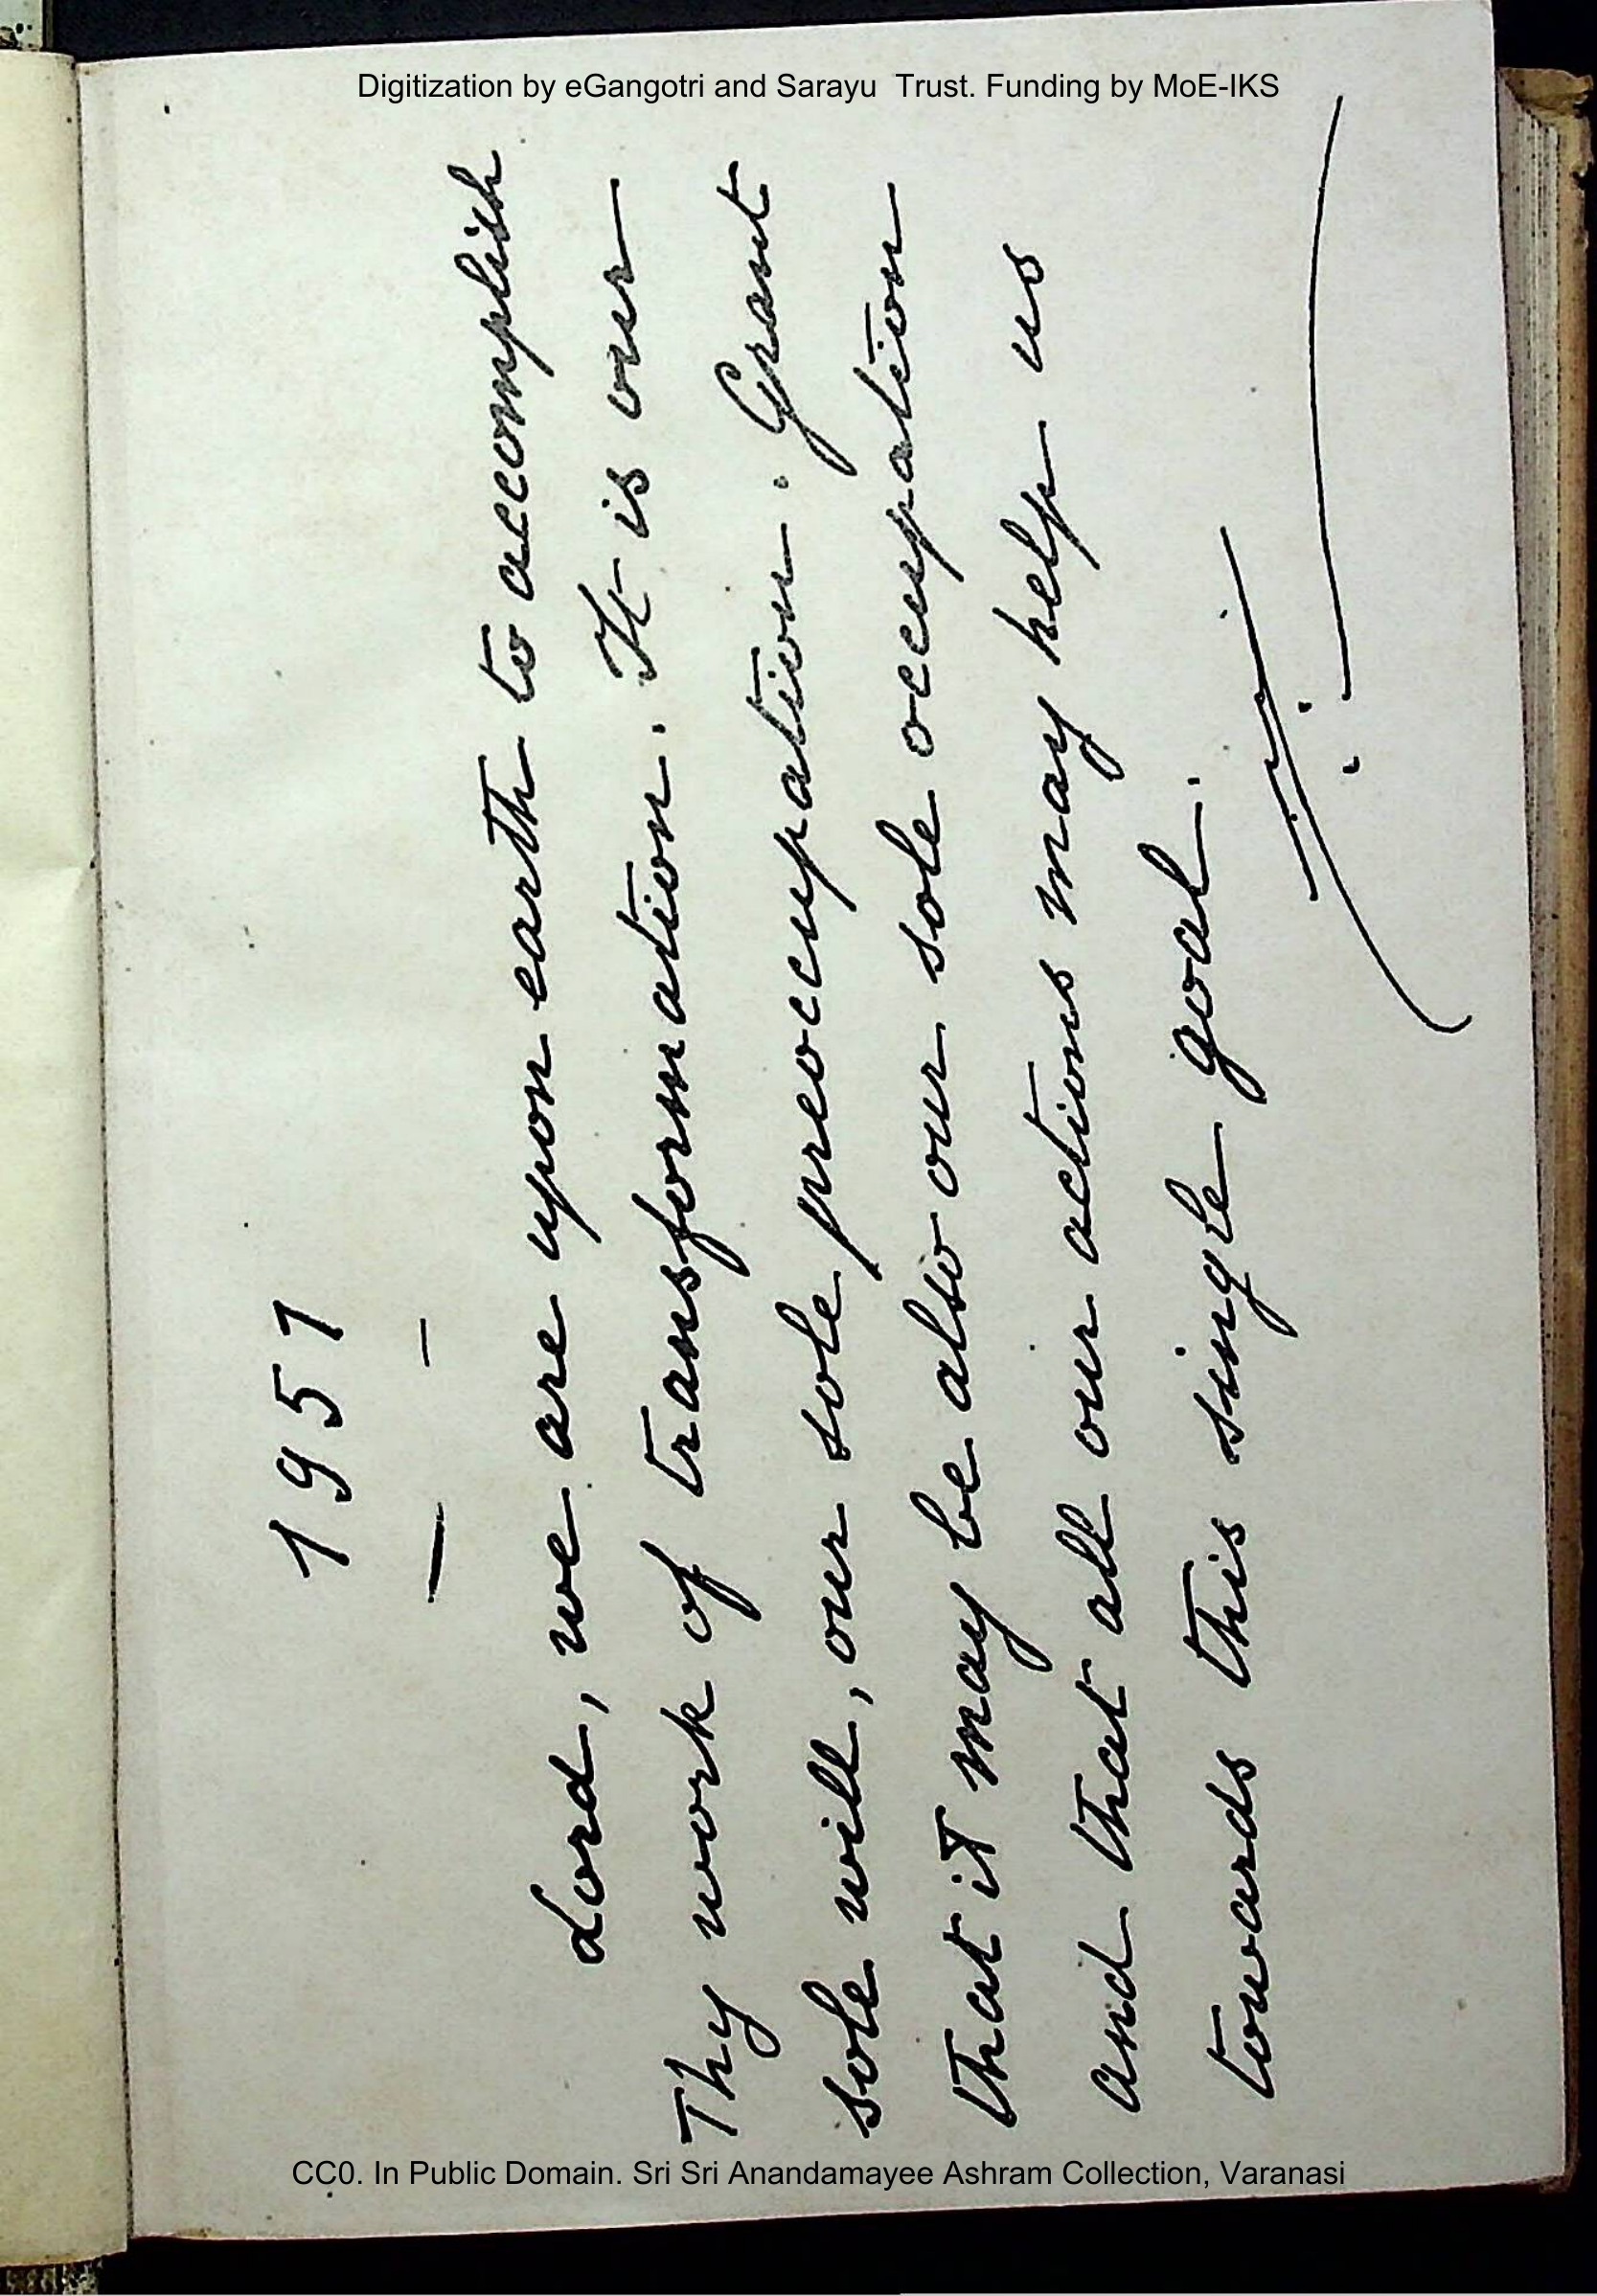 Digitization by eGangotri and Sarayu Trust. Funding by MoE-IKS
1957
Lord, we are upon earth to accomplish
Thy work of transformation. It is our
sole will, our sole preoccupation. Grant
that it may be also our sole occupation
and that all our actions may help us
towards this single goal.
CC0. In Public Domain. Sri Sri Anandamayee Ashram Collection, Varanasi